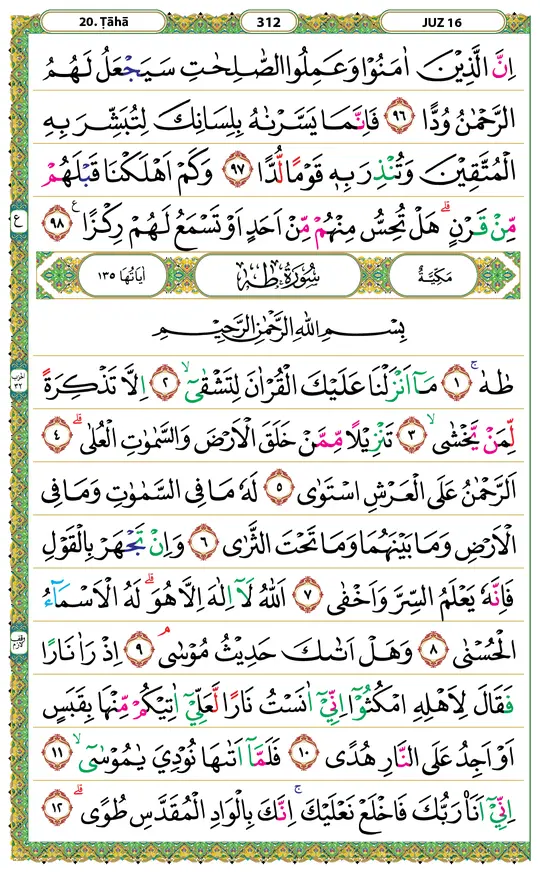 20. Ṭāhā
312
JUZ 16
اِنَّ الَّذِيْنَ اٰمَنُوْا وَعَمِلُوا الصّٰلِحٰتِ سَيَجْعَلُ لَهُمُ
الرَّحْمٰنُ وُدًّا ٩٦ فَاِنَّمَا يَسَّرْنٰهُ بِلِسَانِكَ لِتُبَشِّرَ بِهِ
الْمُتَّقِيْنَ وَتُنْذِرَ بِهٖ قَوْمًا لُّدًّا ٩٧ وَكَمْ اَهْلَكْنَا قَبْلَهُمْ
مِّنْ قَرْنٍ ۗ هَلْ تُحِسُّ مِنْهُمْ مِّنْ اَحَدٍ اَوْ تَسْمَعُ لَهُمْ رِكْزًا ࣖ ٩٨
ع
مَكِيَّةٌ
سُوْرَةُ طٰهٰ
اٰيَاتُهَا ١٣٥
بِسْمِ اللّٰهِ الرَّحْمٰنِ الرَّحِيْمِ
طٰهٰ ۚ ١ مَآ اَنْزَلْنَا عَلَيْكَ الْقُرْاٰنَ لِتَشْقٰٓى ۙ ٢ اِلَّا تَذْكِرَةً
الحزب ٣٢
لِّمَنْ يَّخْشٰى ۙ ٣ تَنْزِيْلًا مِّمَّنْ خَلَقَ الْاَرْضَ وَالسَّمٰوٰتِ الْعُلٰى ۗ ٤
اَلرَّحْمٰنُ عَلَى الْعَرْشِ اسْتَوٰى ٥ لَهٗ مَا فِى السَّمٰوٰتِ وَمَا فِى
الْاَرْضِ وَمَا بَيْنَهُمَا وَمَا تَحْتَ الثَّرٰى ٦ وَاِنْ تَجْهَرْ بِالْقَوْلِ
فَاِنَّهٗ يَعْلَمُ السِّرَّ وَاَخْفٰى ٧ اَللّٰهُ لَآ اِلٰهَ اِلَّا هُوَ ۗ لَهُ الْاَسْمَاۤءُ
الْحُسْنٰى ٨ وَهَلْ اَتٰىكَ حَدِيْثُ مُوْسٰى ۘ ٩ اِذْ رَاٰ نَارًا
وقف لازم
فَقَالَ لِاَهْلِهِ امْكُثُوْٓا اِنِّيْٓ اٰنَسْتُ نَارًا لَّعَلِّيْٓ اٰتِيْكُمْ مِّنْهَا بِقَبَسٍ
اَوْ اَجِدُ عَلَى النَّارِ هُدًى ١٠ فَلَمَّآ اَتٰىهَا نُوْدِيَ يٰمُوْسٰٓى ۙ ١١
اِنِّيْٓ اَنَا۠ رَبُّكَ فَاخْلَعْ نَعْلَيْكَ ۚ اِنَّكَ بِالْوَادِ الْمُقَدَّسِ طُوًى ۗ ١٢